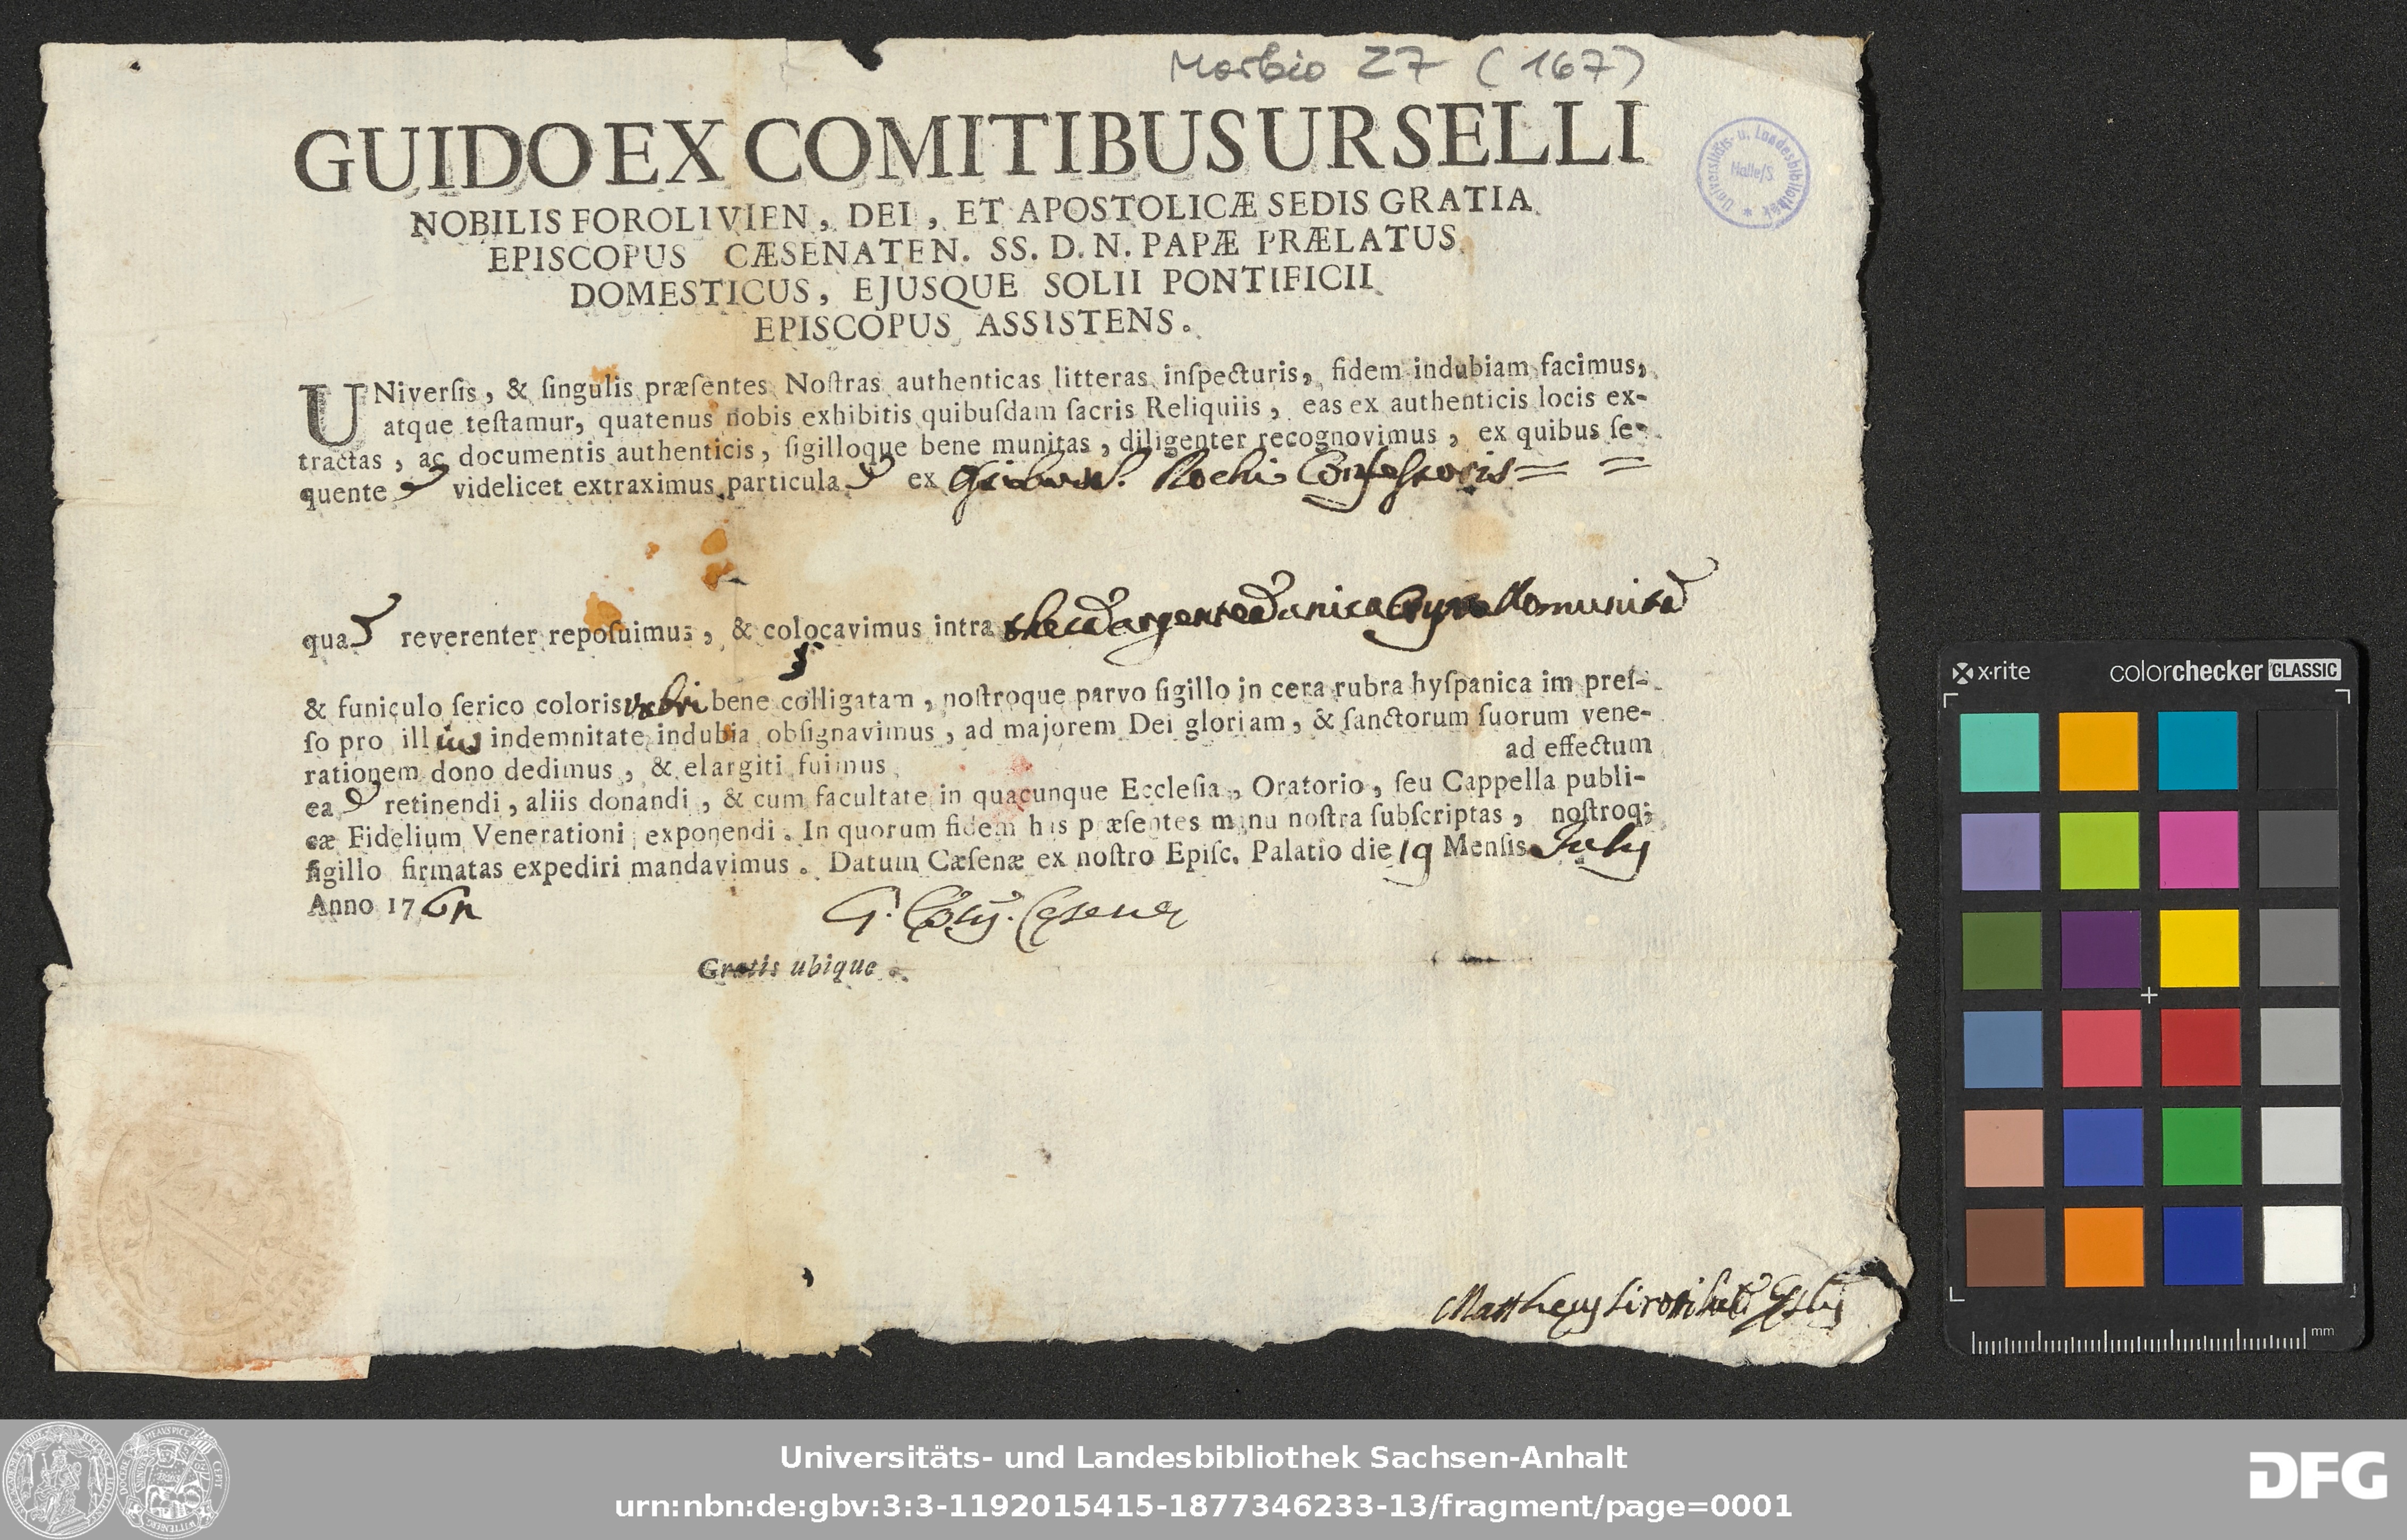 Morbio Z7 (167)
GUIDO EX COMITIBUS URSELLI
Universitäts- u. Landesbibliothek
Halle/S
NOBILIS FOROLIVIEN, DEI, ET APOSTOLICÆ SEDIS GRATIA
EPISCOPUS CÆSENATEN. SS. D. N. PAPÆ PRÆLATUS
DOMESTICUS, EJUSQUE SOLII PONTIFICII
EPISCOPUS ASSISTENS.
UNiverſis, & ſingulis præſentes Noſtras authenticas litteras inſpecturis, fidem indubiam facimus,
atque teſtamur, quatenus nobis exhibitis quibuſdam ſacris Reliquiis, eas ex authenticis locis ex-
tractas, ac documentis authenticis, ſigilloque bene munitas, diligenter recognovimus, ex quibus ſe-
quente videlicet extraximus particula ex S. Rochi Confessoris = =
qua reverenter repoſuimus, & colocavimus intra theca argentea unica munita
& funiculo ſerico coloris rubri bene colligatam, noſtroque parvo ſigillo in cera rubra hyſpanica im preſ-
ſo pro illius indemnitate indubia obſignavimus, ad majorem Dei gloriam, & ſanctorum ſuorum vene-
rationem dono dedimus, & elargiti fuimus ad effectum
ea retinendi, aliis donandi, & cum facultate in quacunque Eccleſia, Oratorio, ſeu Cappella publi-
cæ Fidelium Venerationi exponendi. In quorum fidem has præſentes manu noſtra ſubſcriptas, noſtroq;
ſigillo firmatas expediri mandavimus. Datum Cæſenæ ex noſtro Epiſc. Palatio die 19 Menſis July
Anno 176
G. Cesenę
Gratis ubique.
Mattheus
x·rite colorchecker CLASSIC
mm
Universitäts- und Landesbibliothek Sachsen-Anhalt
urn:nbn:de:gbv:3:3-1192015415-1877346233-13/fragment/page=0001
DFG